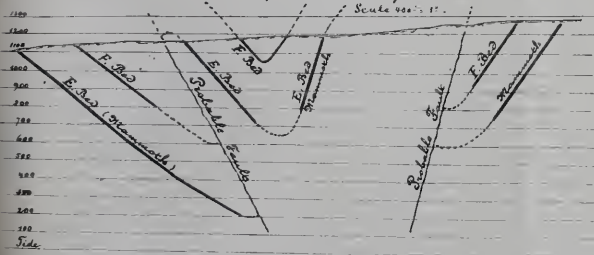 Scale 400' = 1".
1300
1200
1100
1000
900
800
700
600
500
400
300
200
100
Tide.
E. Bed (Mammoth)
F. Bed
Probable Fault
E. Bed
F. Bed
E. Bed
Mammoth
Probable Fault
F. Bed
Mammoth